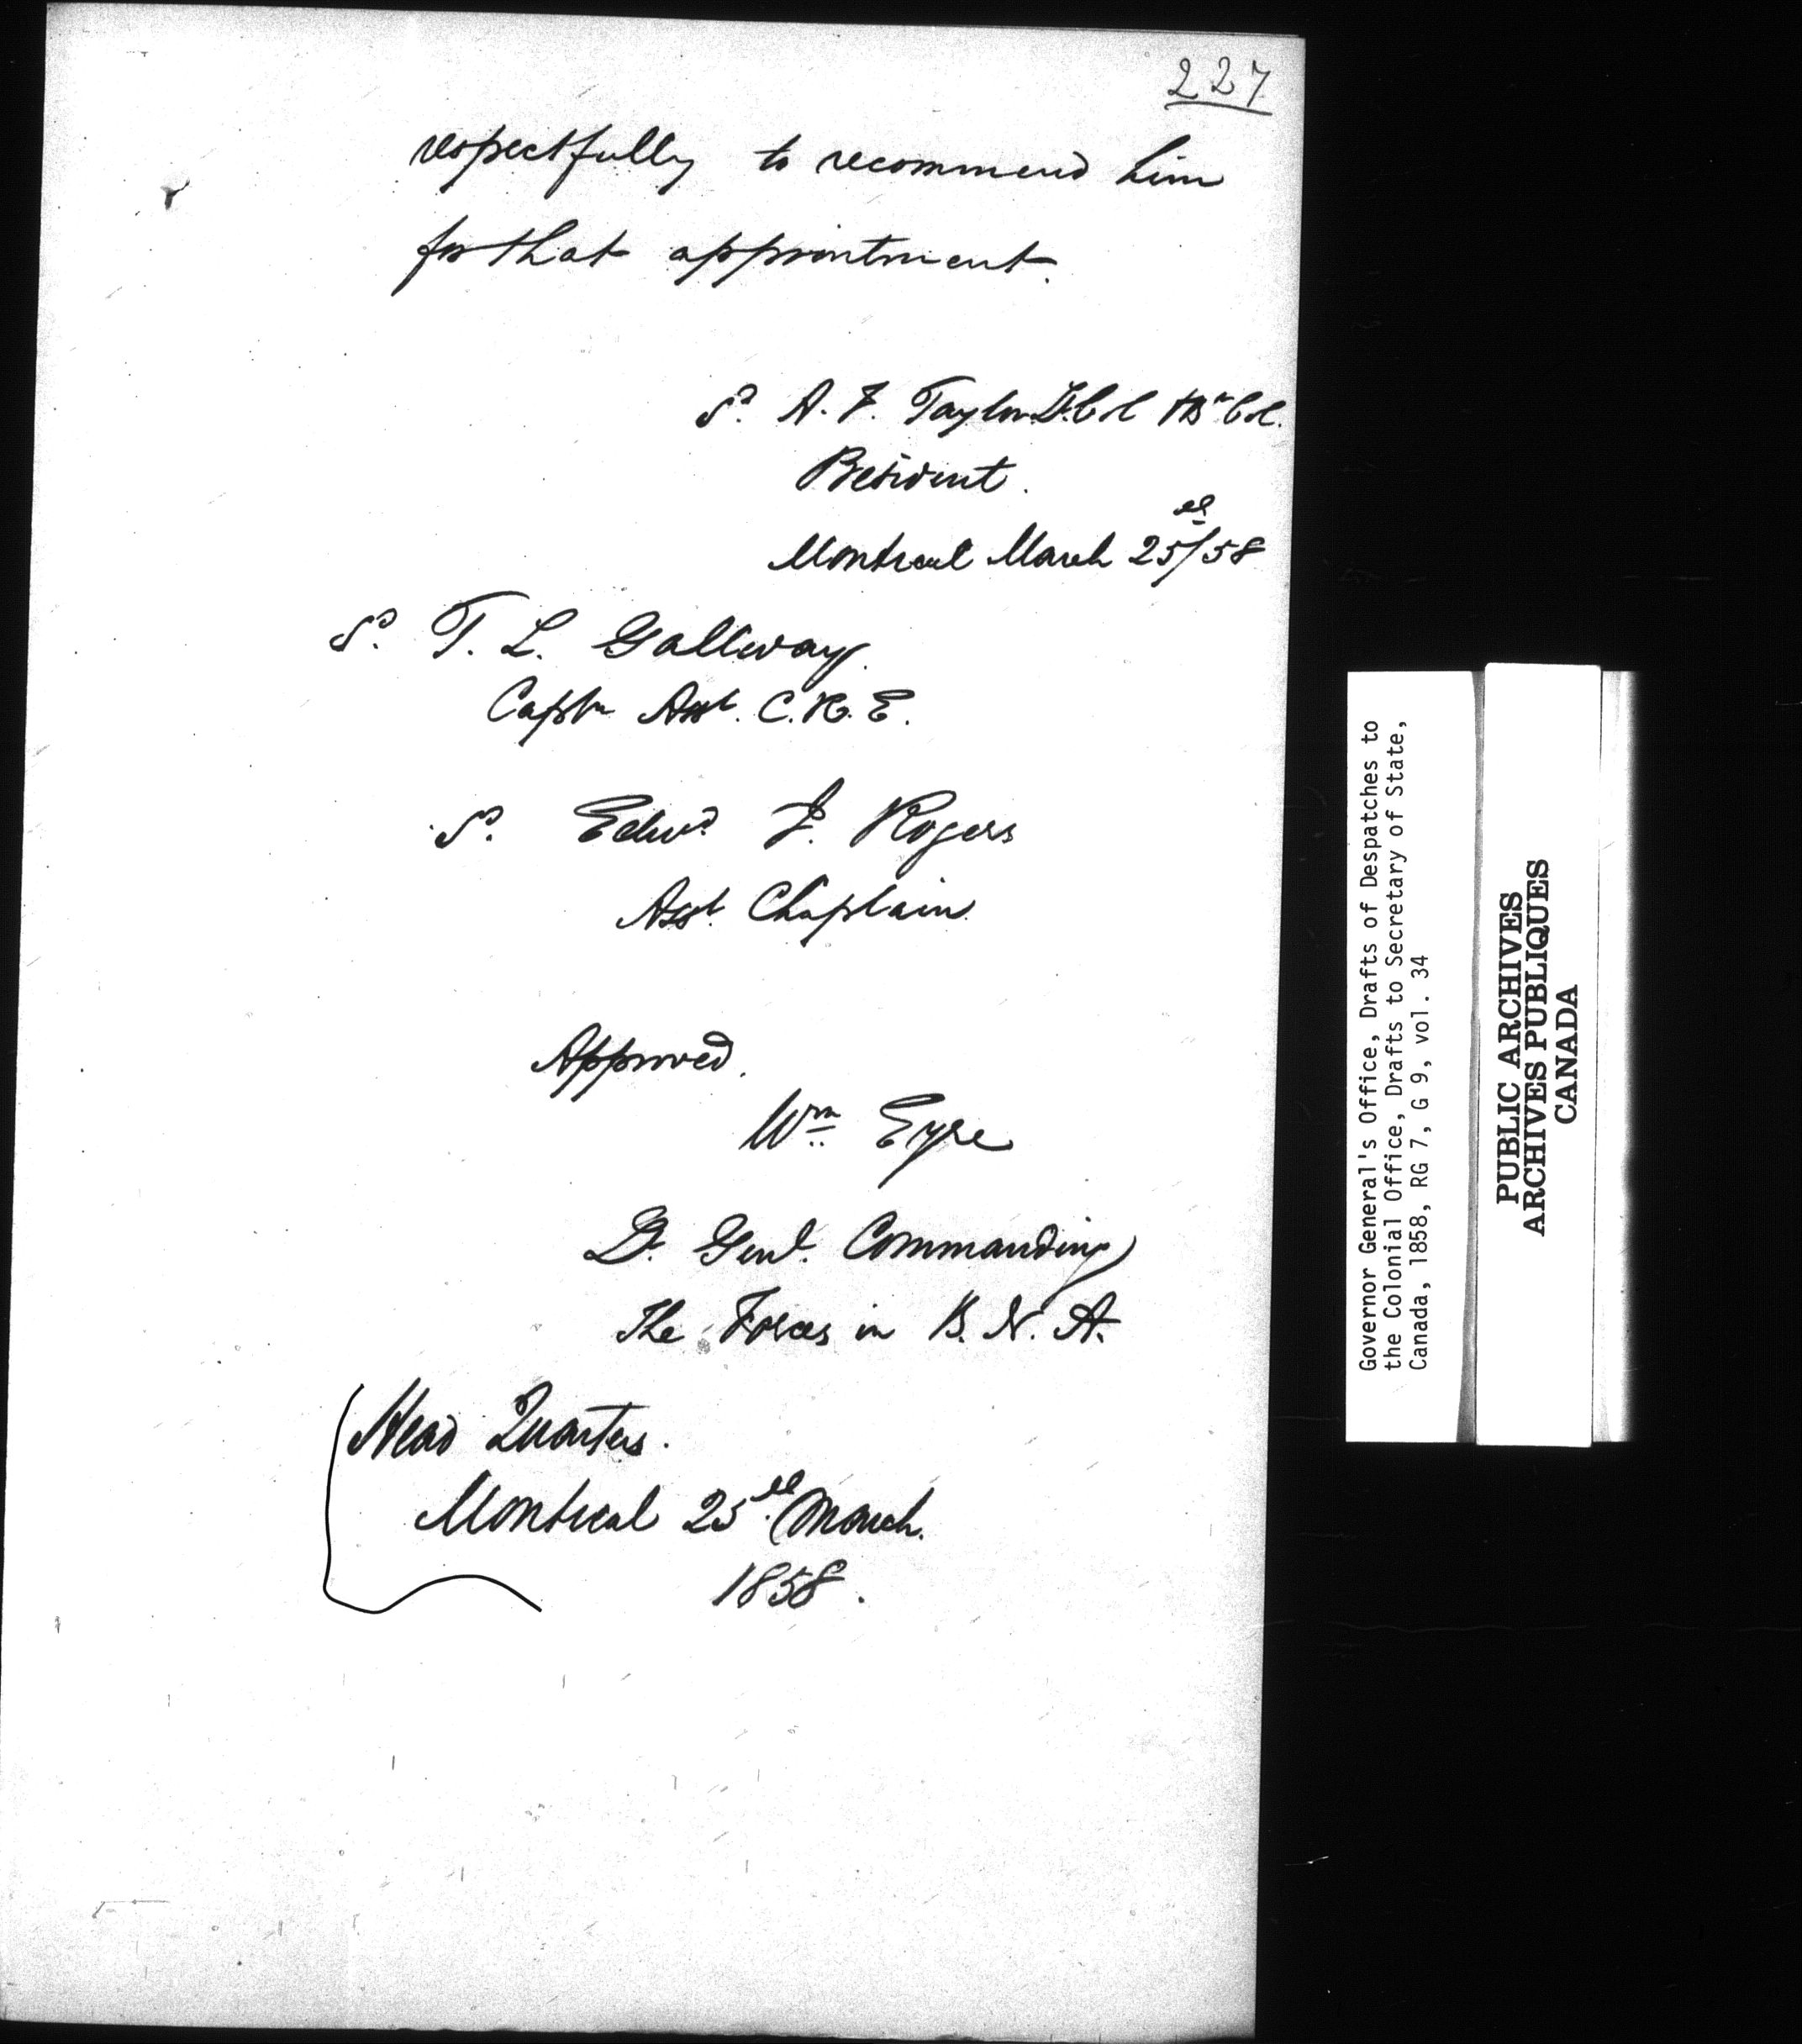 227
respectfully to recommend him
for that appointment.
Sd. A. F. Taylor Lt. Col & Bt Col.
President.
Montreal March 25th/58
Sd. T. L. Gallwey.
Captn Asst. C.R.E.
Sd. Edwd. J. Rogers
Asst. Chaplain.
Approved.
Wm Eyre
Lt. Genl. Commanding
The Forces in B. N. A.
Head Quarters.
Montreal 25th March.
1858.
Governor General's Office, Drafts of Despatches to
the Colonial Office, Drafts to Secretary of State,
Canada, 1858, RG 7, G 9, vol. 34
PUBLIC ARCHIVES
ARCHIVES PUBLIQUES
CANADA